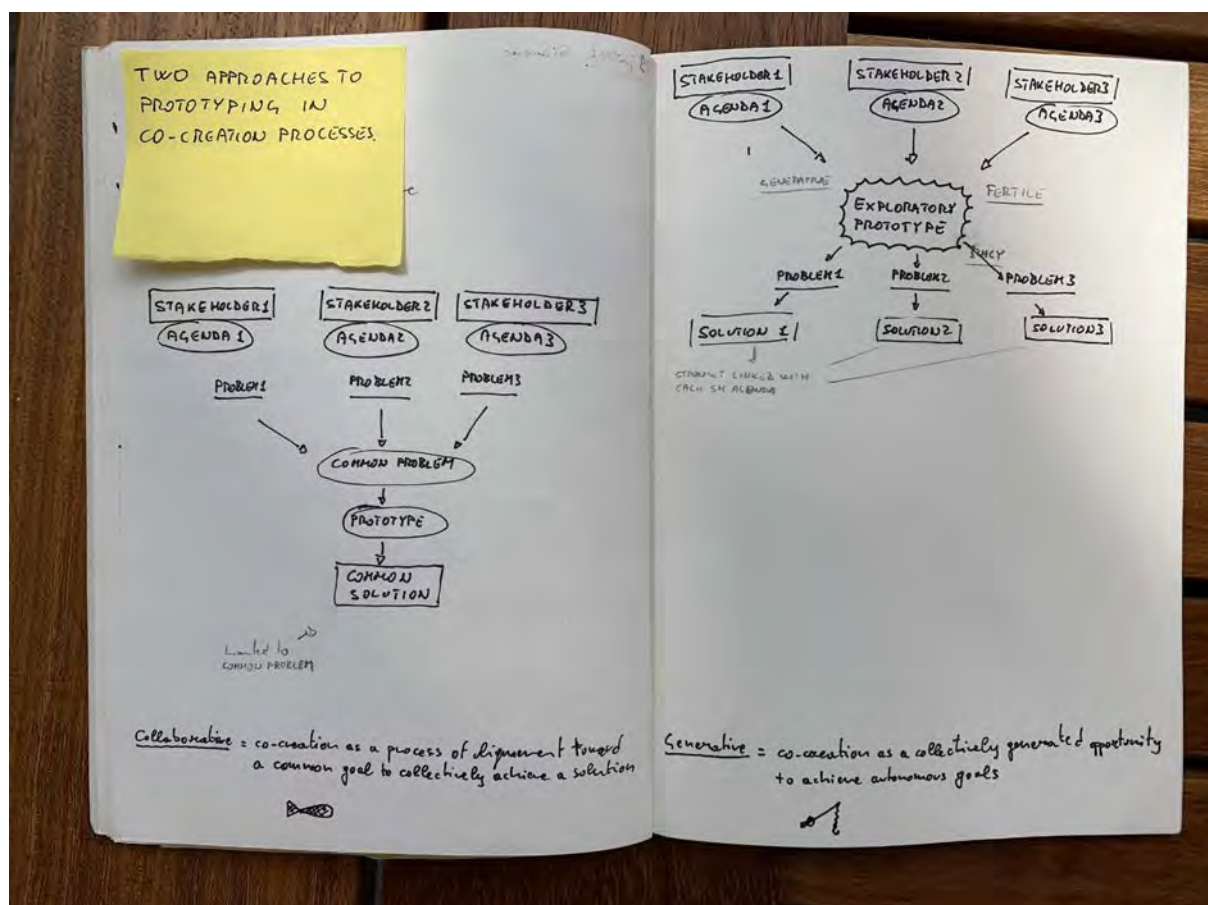 TWO APPROACHES TO
PROTOTYPING IN
CO-CREATION PROCESSES.
STAKEHOLDER1 STAKEHOLDER2 STAKEHOLDER3
AGENDA 1 AGENDA2 AGENDA3
PROBLEM1 PROBLEM2 PROBLEM3
COMMON PROBLEM
PROTOTYPE
COMMON
SOLUTION
Linked to
COMMON PROBLEM
Collaborative = co-creation as a process of lignement toward
a common goal to collectively achieve a solution
STAKEHOLDER1 STAKEHOLDER2 STAKEHOLDER3
AGENDA1 AGENDA2 AGENDA3
GENERATIVE FERTILE
EXPLORATORY
PROTOTYPE
JUICY
PROBLEM1 PROBLEM2 PROBLEM3
SOLUTION 1 SOLUTION2 SOLUTION3
LINKED WITH
EACH SH AGENDA
Generative = co-creation as a collectively generated opportunity
to achieve autonomous goals